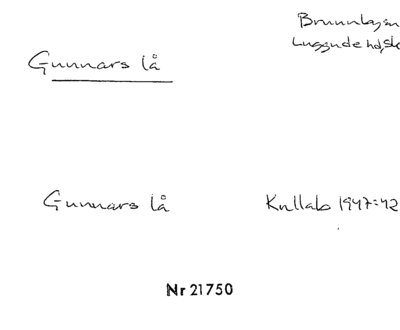 Brunnby sn
Luggude hd, Sk
Gunnars lå
Gunnars lå
Kullab 1947:42
Nr 21750